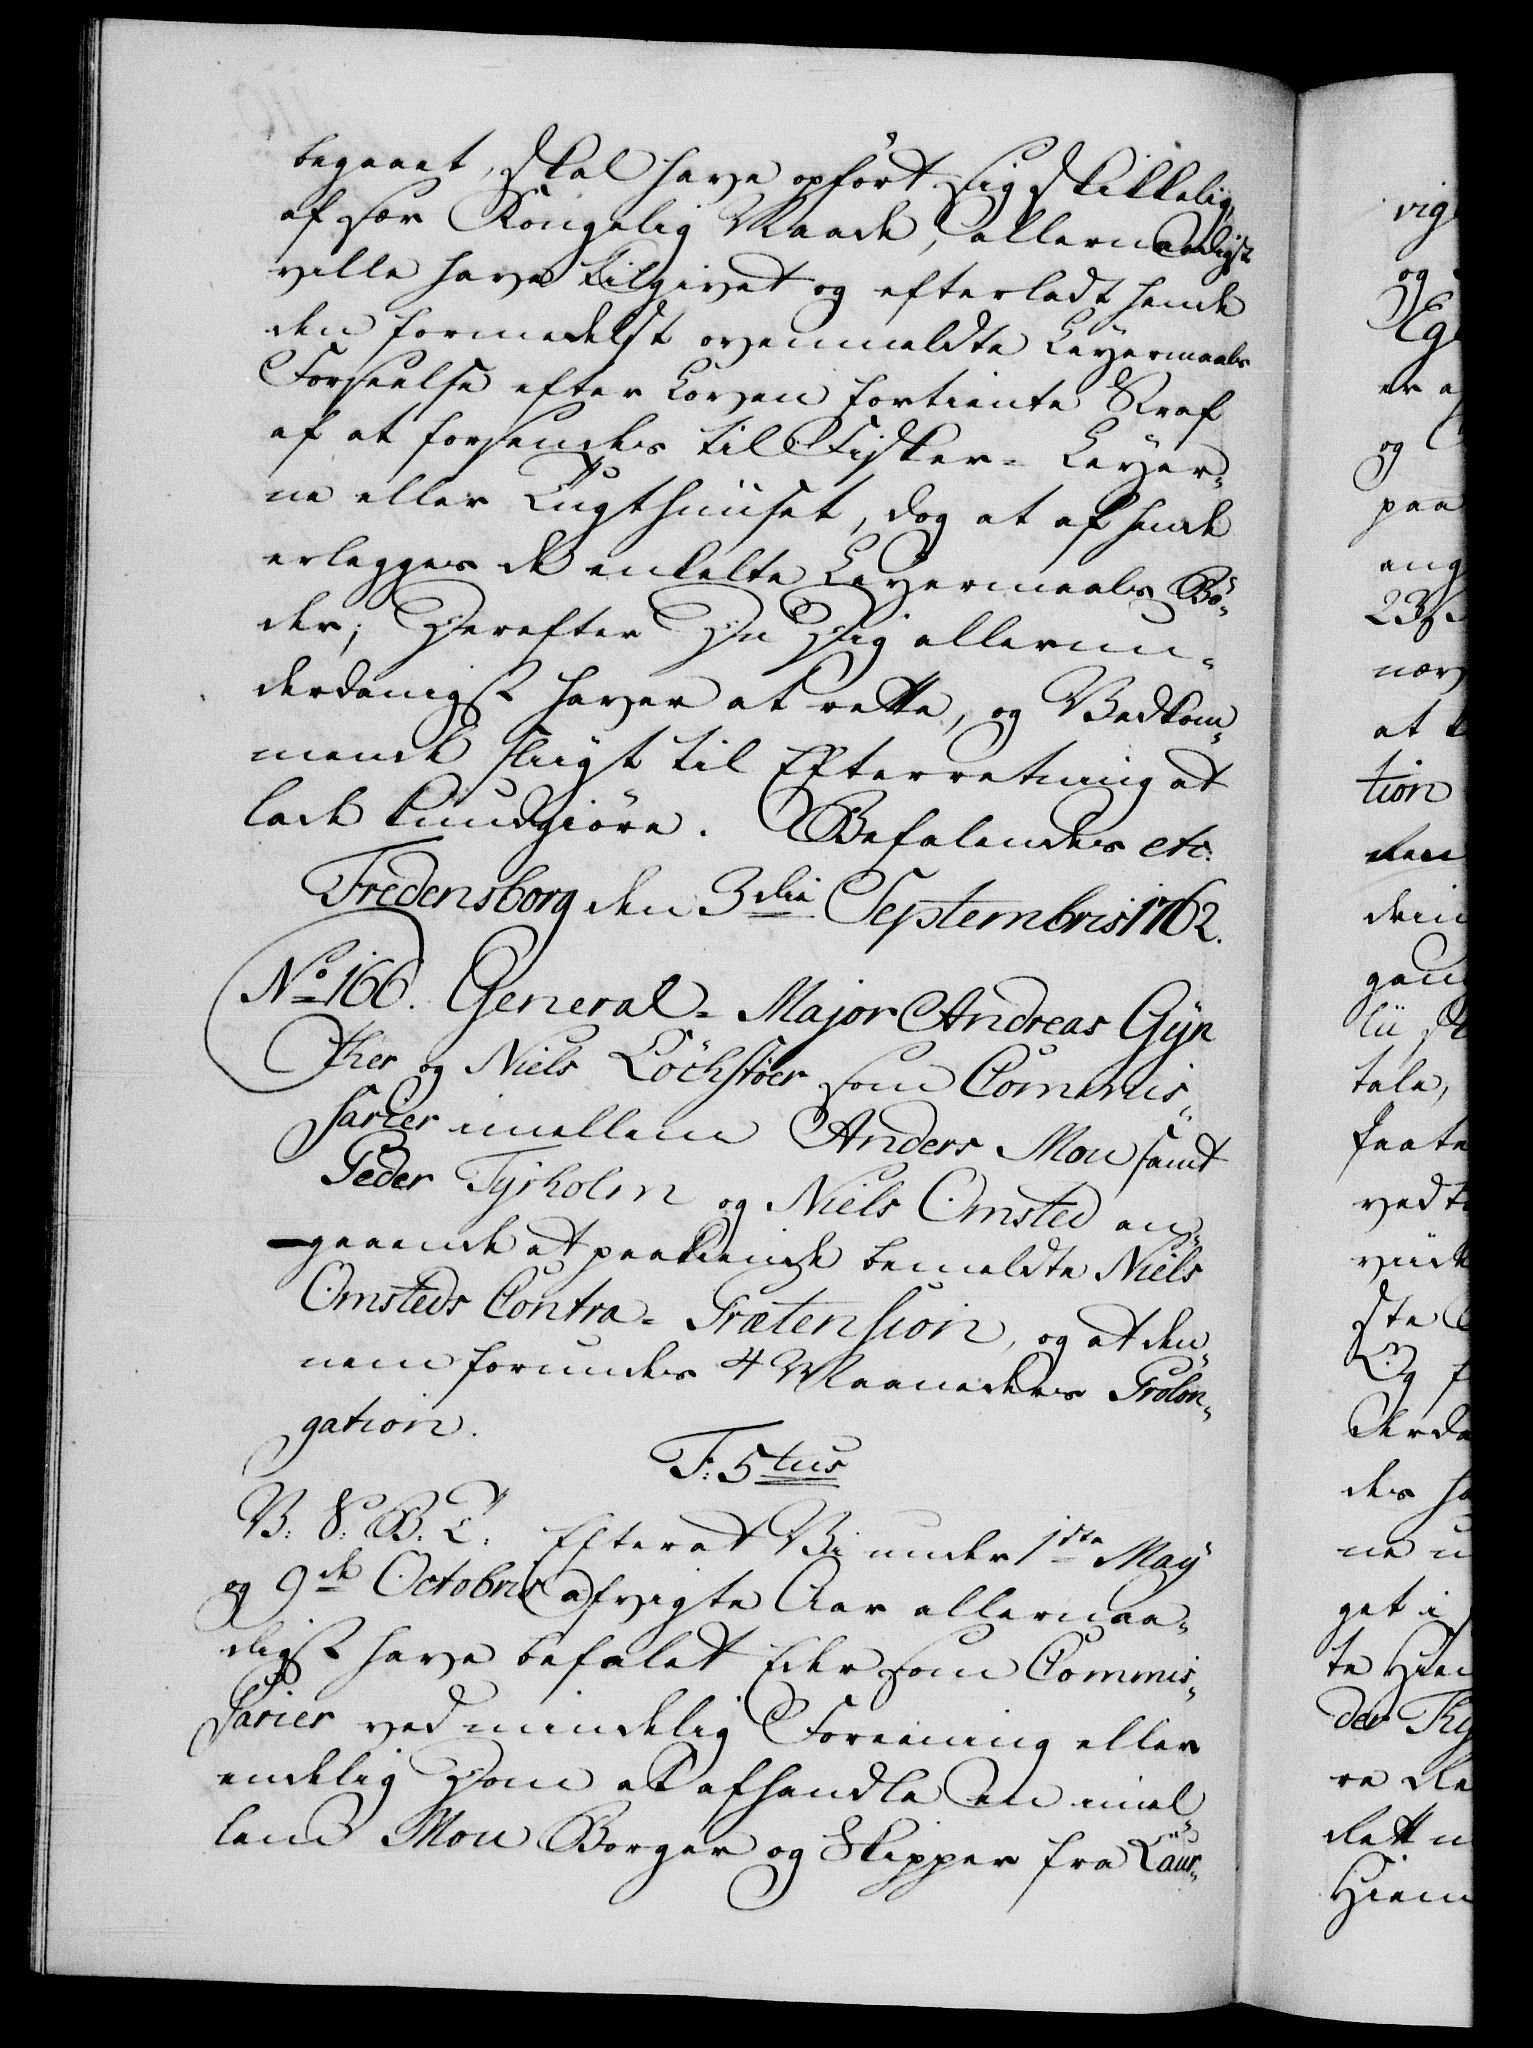 begaaet, skal have opført sig skikkelig,
af sær Kongelig Naade, allernaadigst
ville have tilgivet og efterladt hende
den formedelst ovenmeldte Leyermaals
Forseelse efter Loven fortiente Straf
af at forsendes til Fisker-Leyer-
ne eller Tugthuuset, dog at af hende
erlegges de enkelte Leyermaals Bø-
der; Derefter Du Dig allerun-
derdanigst haver at rette, og Vedkom-
mende sligt til Efterretning at
lade kundgiøre. Befalendes etc:
Fredensborg den 3die Septembris 1762.
No 166. General-Major Andreas Gyn
ther og Niels Löchstöer som Commis-
sarier imellem Anders Mou samt
Peder Tyrholm og Niels Omsted an-
gaaende at paakiende bemeldte Niels
Omsteds Contra-Prætension, og at den-
nem forundes 4 Maaneders Prolon-
gation.
F: 5tus
V: S: B: T: Efterat Vi under 1ste May
og 9de Octobris afvigte Aar allernaa-
digst have befalet Eder som Commis-
sarier ved mindelig Foreening eller
endelig Dom at afhandle en imel-
lem Mou Borger og Skipper fra Laur-